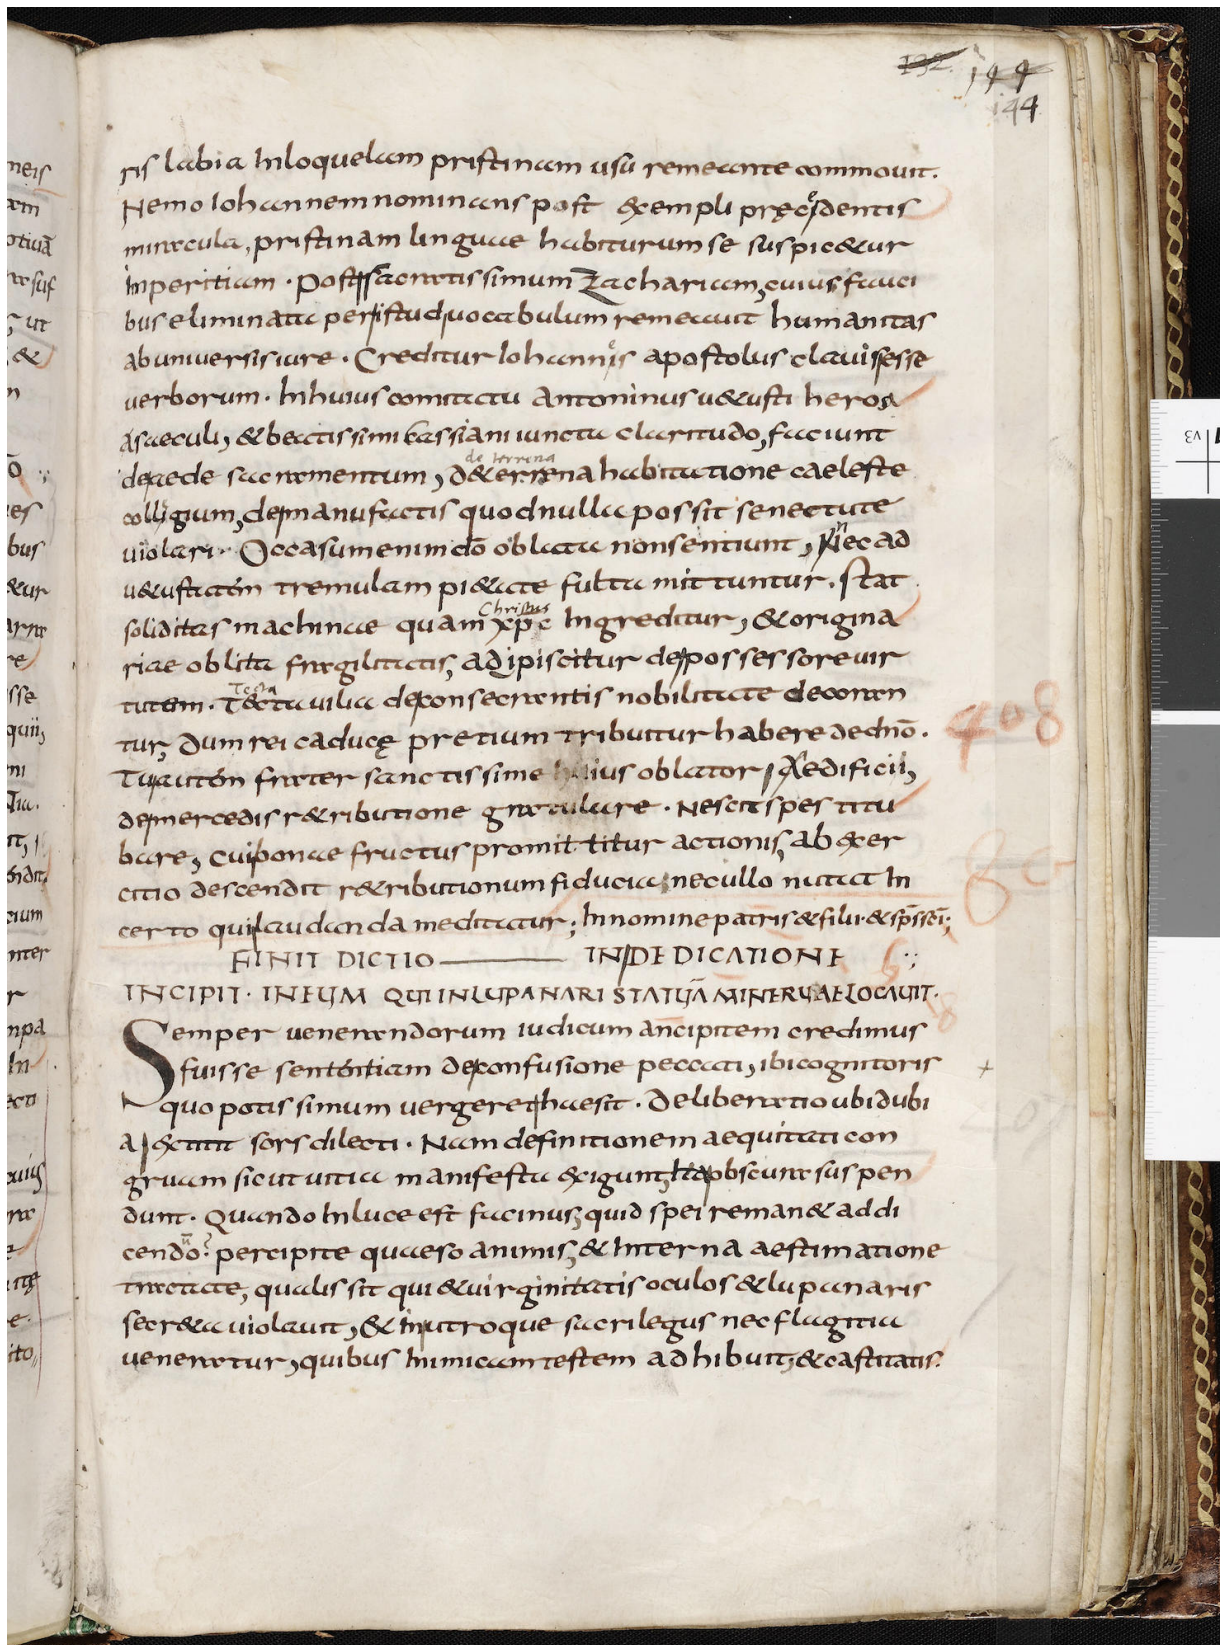 132. 144
144
ris labia In loquelam pristinam usū remeante commouit.
Nemo Iohannem nominans post exempli pręcidentis
miracula, pristinam linguae habiturum se suspicetur
Inperitiam. Post sacratissimum Zachariam, cuius fauci
bus eliminata per istud uocabulum remeauit humanitas
ab uniuersis iure. Creditur Iohannis apostolus clauis esse
uerborum. In huius comitatu Antoninus uetusti heros
saeculi, & beatissimi Cassiani iuncta claritudo, faciunt
de aede sacramentum, de terrena
d&errena habitatione caeleste
colligium, de manufactis quod nulla possit senectute
uiolari. Occasum enim dō oblata non sentiunt, nec ad
uetustatem tremulam pietate fulta mittuntur. stat
Christus
soliditas machinae quam xp̄c Ingreditur, & origina
riae oblita fragilitatis, adipiscitur de possessore uir
Tecta
tutem. Tecta uilia de consecrantis nobilitate decoran
tur, dum rei caducę pretium tribuitur habere de dn̄o.
Tu autem frater sanctissime huius oblator Aedificii,
de mercedis retributione gratulare. Nescit spes titu
bare, cui bonae fructus promittitur actionis, ab exer
citio descendit retributionum fiducia; nec ullo nutat In
certo qui laudanda meditatur; In nomine patris & filii & sp̄s sc̄i;
FINIT DICTIO IN DEDICATIONE
INCIPIT. IN EUM QUI IN LUPANARI STATUĀ MINERUAE LOCAUIT.
Semper uenerandorum iudicum ancipitem credimus
fuisse sententiam de confusione peccati, ibi cognitoris
quo potissimum uergeret haesit. Deliberatio ubi dubi
a extitit sors dilecti. Nam definitionem aequitati con
gruam sicut uitia manifesta exigunt, ita obscura suspen
dunt. Quando In luce est facinus, quid spei remanet addi
cendo? percipite quaeso animis, & Interna aestimatione
tractate, qualis sit qui & uirginitatis oculos & lupanaris
secreta uiolauit, & In utroque sacrilegus nec flagitia
ueneratur, quibus Inimicam testem adhibuit, & castitatis.
408